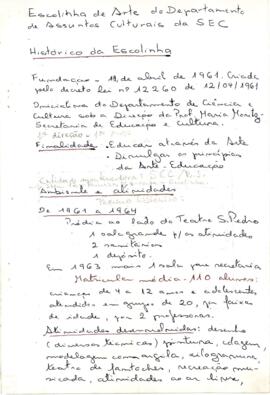 Escolinha de Arte do Departamento
de Assuntos Culturais da SEC
Histórico da Escolinha
Fundação - 19, de abril de 1961. Criada
pelo decreto lei nº 12260 de 12/04/1961
Iniciativa do Departamento de Ciência e
Cultura sob a Direção da Prof. Maria Moritz-
Secretaria de Educação e Cultura.
Finalidade - Educar através da Arte
- Divulgar os princípios
da Arte-Educação
Ambiente e atividades
De 1961 a 1964
Prédio ao lado do Teatro S. Pedro
1 sala grande p/ as atividades
2 sanitários
1 depósito.
Em 1963 mais 1 sala para secretaria
Matrícula média: 110 alunos:
crianças de 4 a 12 anos e adolescentes
atendidos em grupos de 20, por faixas
de idade, por 2 professoras.
Atividades desenvolvidas: desenho
(diversas técnicas) pintura, colagem,
modelagem com argila, xilogravura,
teatro de fantoches, recreação mu-
sicada, atividades ao ar livre,